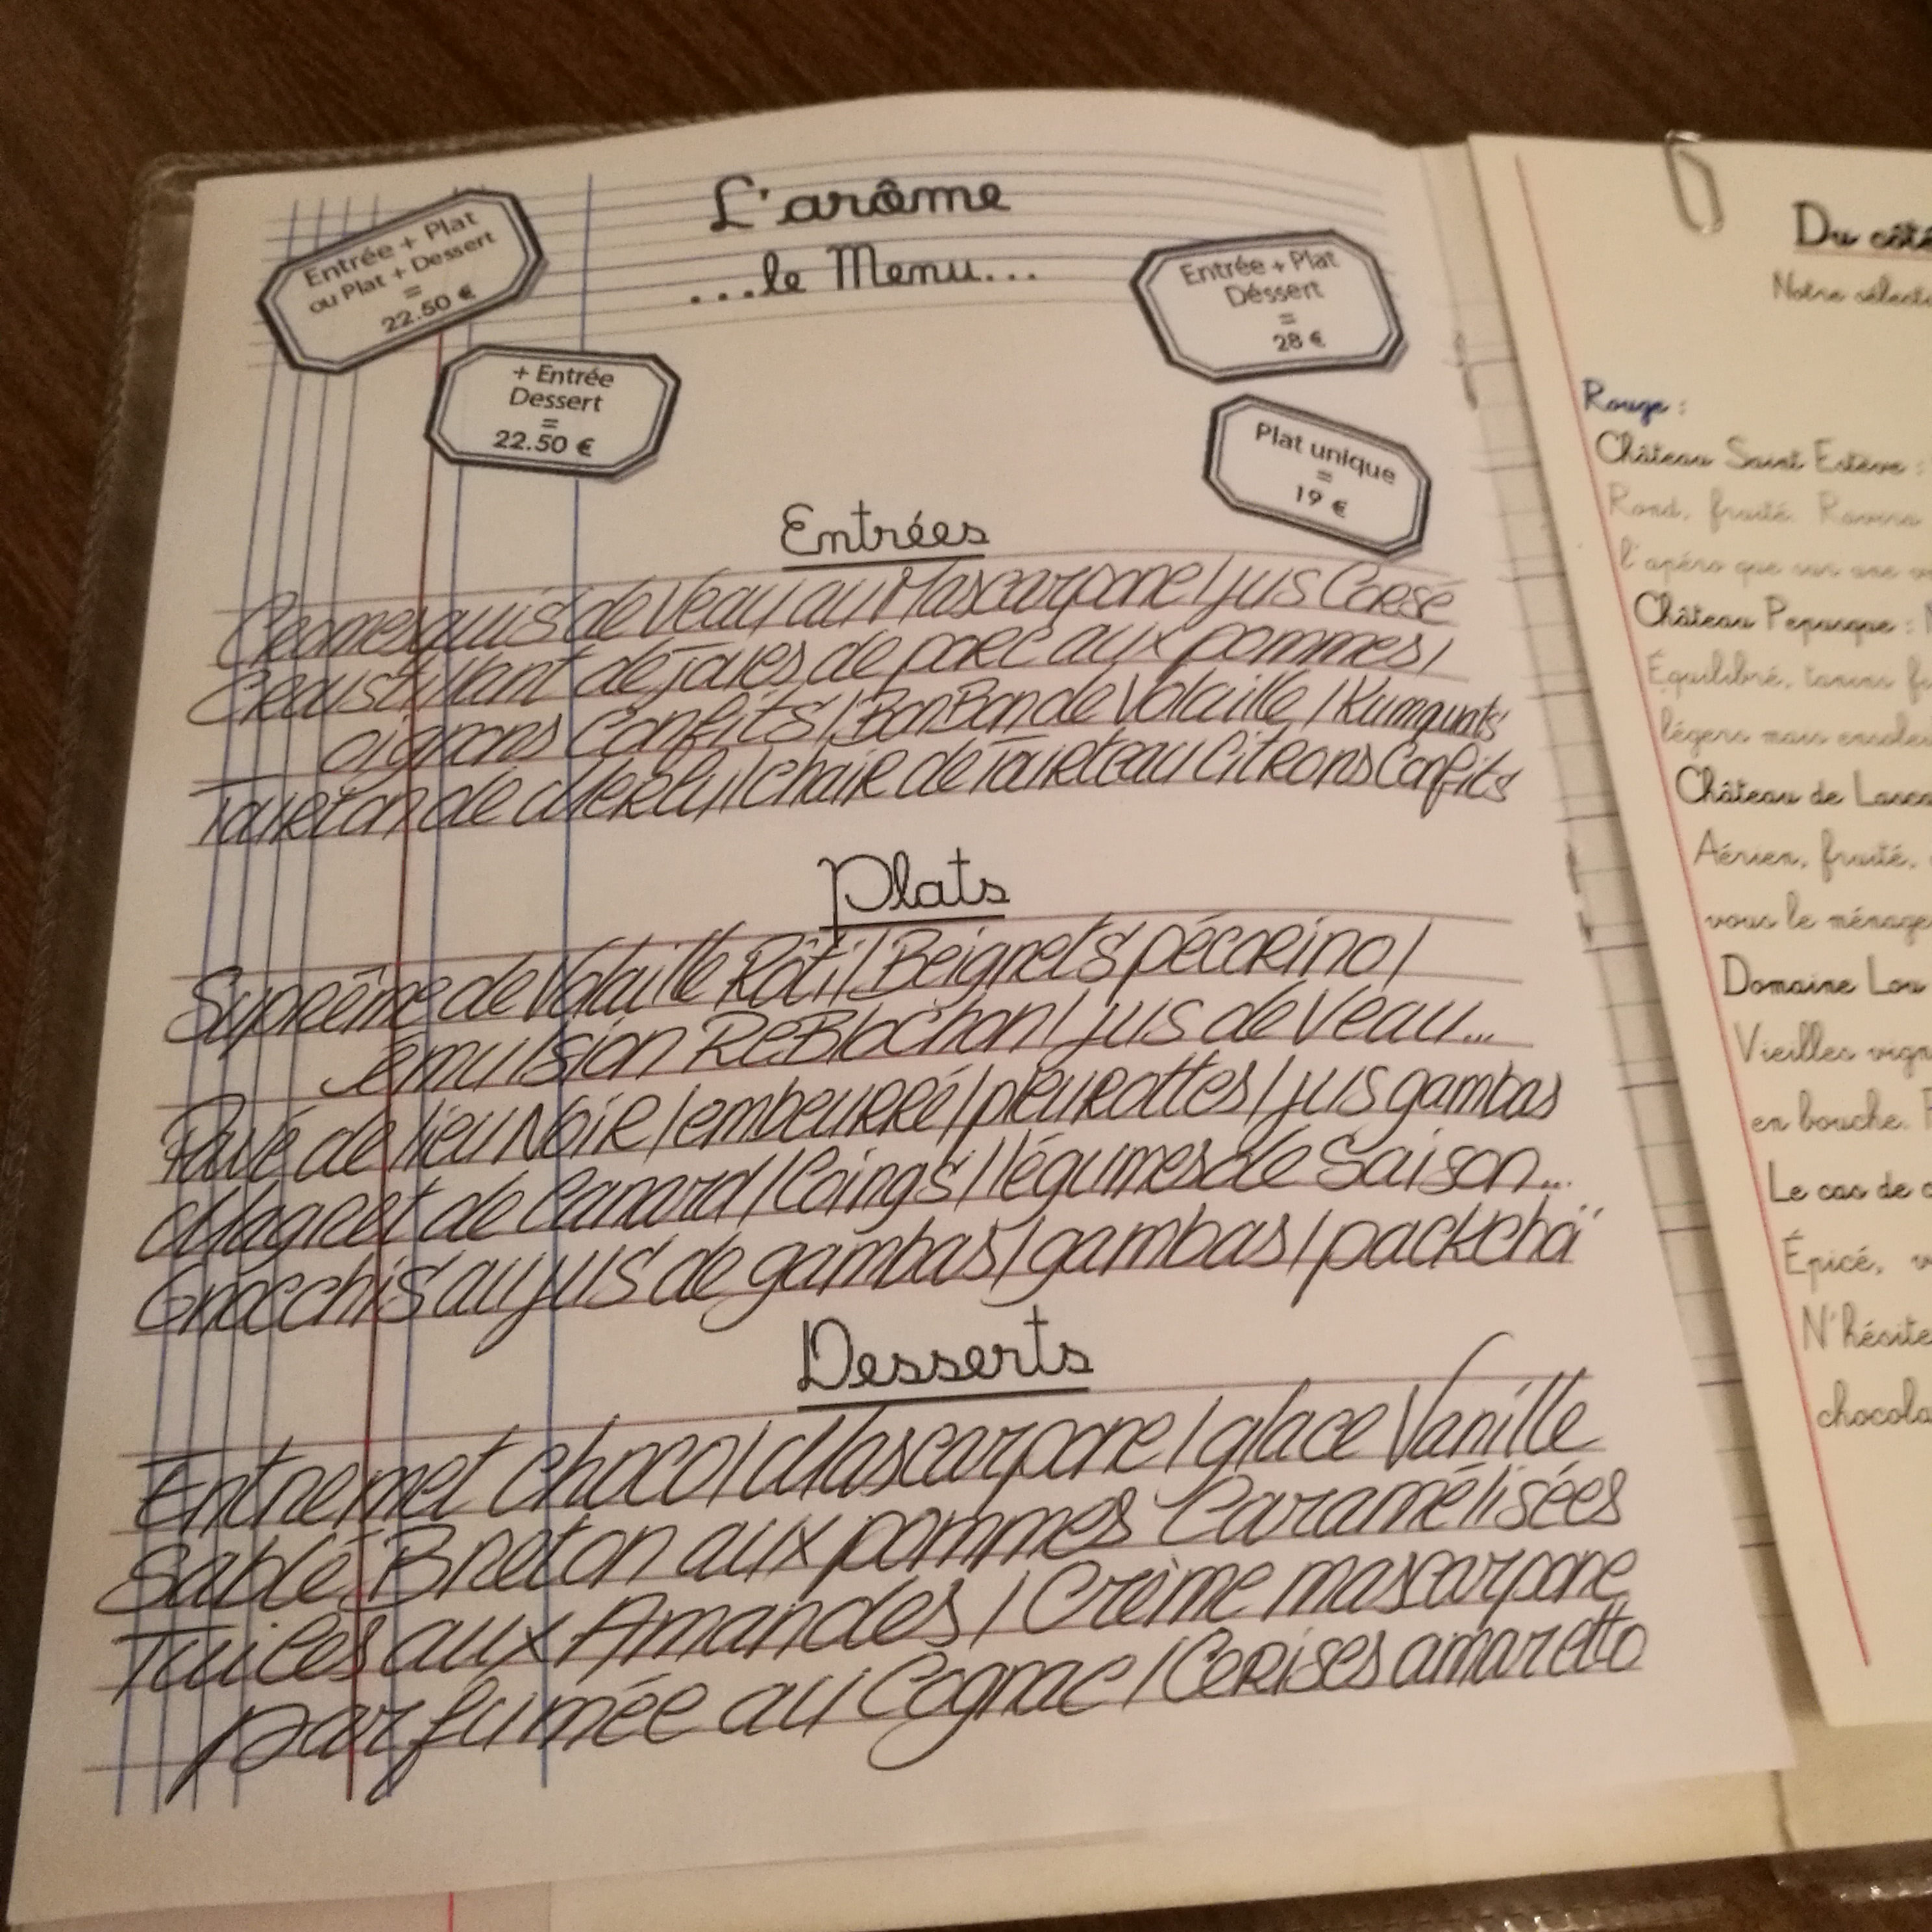 L'arôme
...le Menu...
Entrée + Plat
ou Plat + Dessert
=
22.50 €
+ Entrée
Dessert
=
22.50 €
Entrée + Plat
Déssert
=
28 €
Plat unique
=
19 €
Entrées
Cromesquis de Veau au Mascarpone / jus Corsé
Croustillant de joues de porc aux pommes /
oignons Confits / BonBon de Volaille / Kumquats
de Merlu / Chair de Tourteau Citrons Confits
Plats
Suprême de Volaille Rôti / Beignets pécorino /
émulsion ReBlochon / jus de Veau...
Pavé de lieu Noir / embeurré / pleurottes / jus gambas
Magret de Canard / Coings / légumes de Saison...
Gnocchis au jus de gambas / gambas / packchoï
Desserts
Entremet choco / Mascarpone / glace Vanille
Sablé Breton aux pommes Caramélisées
Tuiles aux Amandes / Crème mascarpone
parfumée au Cognac / Cerises amaretto
Du côté
Notre
Rouge :
Château Saint Estève :
Rond, fruité. Ravira
l'apéro que sur une
Château Pepusque :
Équilibré, tanins
légers mais
Château de
Aérien, fruité,
vous le ménage
Domaine Lou
Vieilles
en bouche.
Le cas de
Épicé,
N'hésite